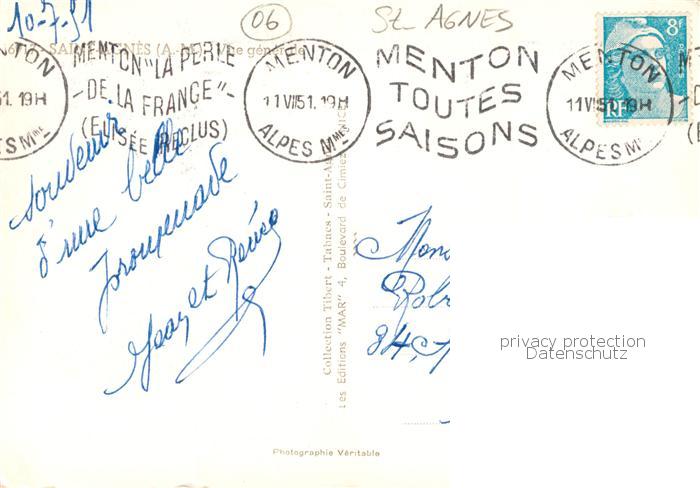 10-7-51
06
St. AGNES
SAINT-AGNÈS (A.-M.) - Vue générale
MENTON
51. 19H
MENTON "LA PERLE
DE LA FRANCE"
(ELISÉE RECLUS)
MENTON
11 VII 51. 19H
ALPES Mmes
MENTON
TOUTES
SAISONS
MENTON
11 VII 51. 19H
ALPES M
8F
RF
Souvenir
d'une belle
promenade
Jean et Renée
Collection Tibert - Tabacs - Saint-A
Les Editions "MAR" 4, Boulevard de Cimiez, NICE
Mon
Rob
84,
privacy protection
Datenschutz
Photographie Véritable